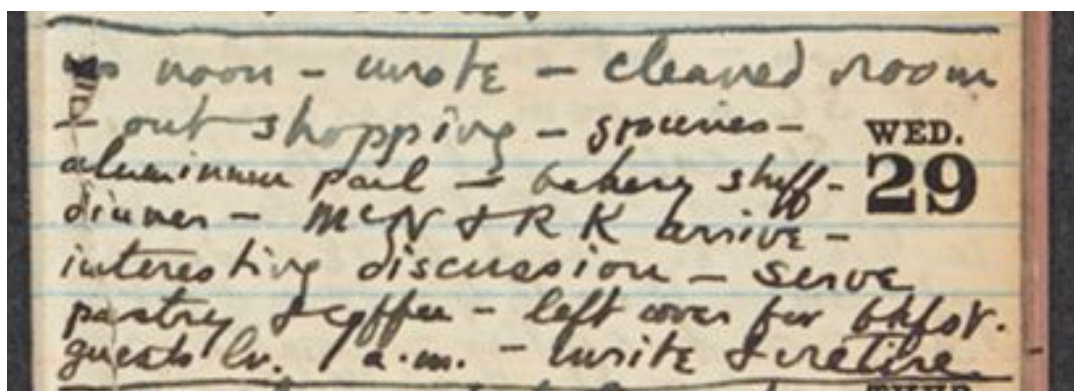 noon - wrote - cleaned room
- out shopping - groceries -
WED.
29
aluminum pail - bakery stuff -
dinner - McN & R K arrive -
interesting discussion - serve
pastry & coffee - left over for bkfst.
guests lv. 1 a.m. - write & retire.